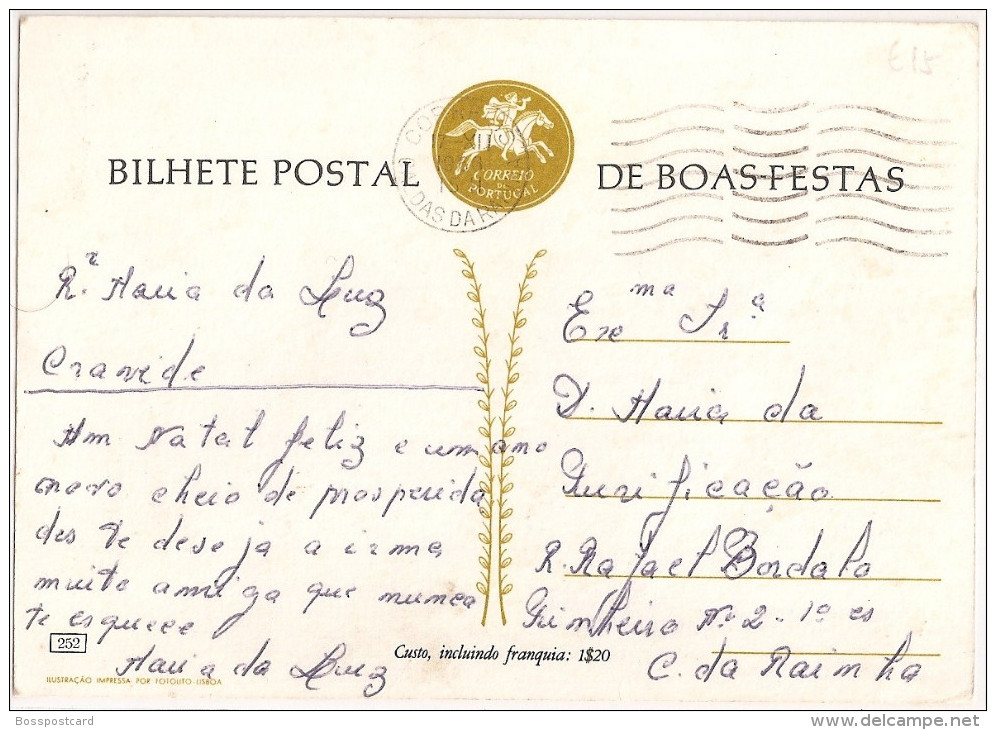 £15
BILHETE POSTAL
DE BOAS-FESTAS
CORREIO
DE
PORTUGAL
R.ᵗ Maria da Luz
Cravide
Um Natal feliz e um ano
novo cheio de prosperida
des te deseja a irmã
muito amiga que nunca
te esquece
Maria da Luz
Exᵐᵃ Srª
D. Maria da
Purificação
R. Rafael Bordalo
Pinheiro Nº 2-1º es
C. da Rainha
252
Custo, incluindo franquia: 1$20
ILUSTRAÇÃO IMPRESSA POR FOTOLITO-LISBOA
Bosspostcard
www.delcampe.net